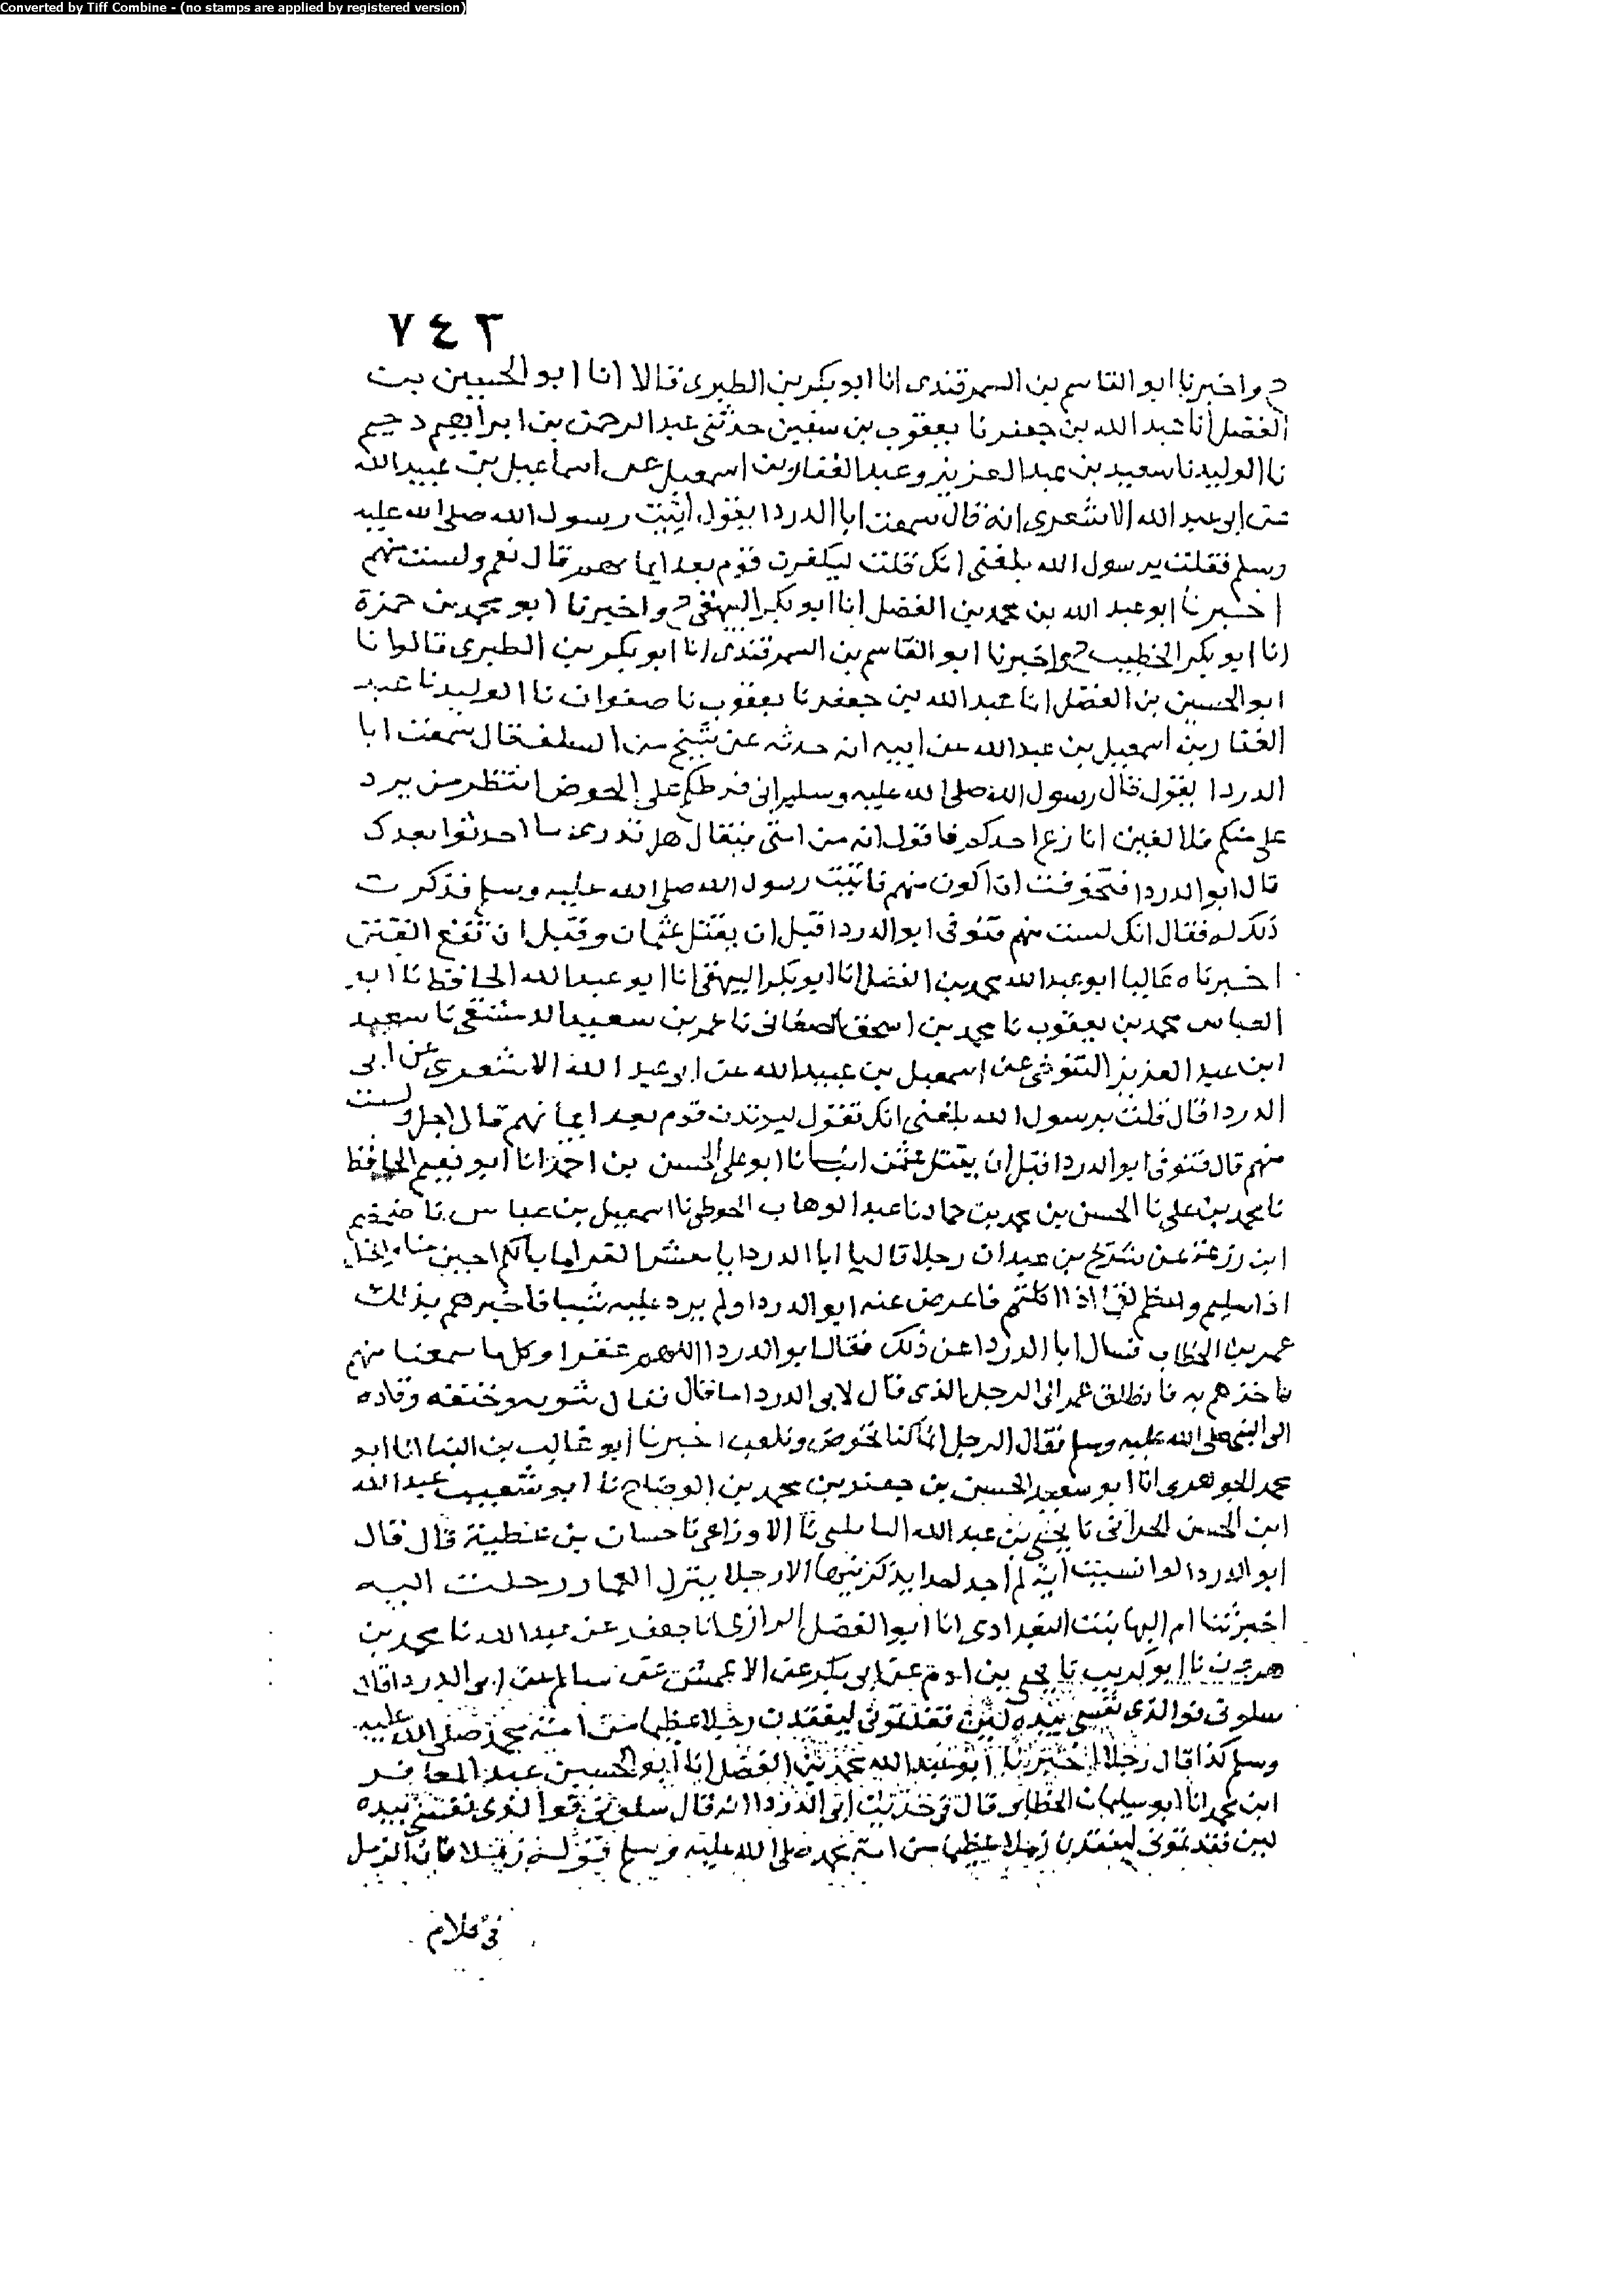 Converted by Tiff Combine - (no stamps are applied by registered version)
٧٤٣
ح واخبرنا ابو القاسم بن السمرقندى انا ابو بكر بن الطبرى قالا انا ابو الحسين بن
الفضل انا عبد الله بن جعفر نا يعقوب بن سفين حدثنى عبد الرحمن بن ابرابهيم دحيم
نا الوليد نا سعيد بن عبد العزيز وعبد الغفار بن اسمعيل عن اسماعيل بن عبيد الله
عن ابى عبد الله الاشعرى انه قال سمعت ابا الدردا يقول اتيت رسول الله صلى الله عليه
وسلم فقلت يرسول الله بلغنى انك قلت ليكفرن قوم بعد ايمانهم قال نعم ولست منهم
اخبرنا ابو عبد الله بن محمد بن الفضل انا ابو بكر البيهقى ح واخبرنا ابو محمد بن حمزة
انا ابو بكر الخطيب ح واخبرنا ابو القاسم بن السمرقندى انا ابو بكر بن الطبرى قالوا نا
ابو الحسين بن الفضل انا عبد الله بن جعفر نا يعقوب نا صفوان نا الوليد نا عبد
الغفار بن اسمعيل بن عبد الله عن ابيه انه حدثه عن شيخ من السلف قال سمعت ابا
الدردا يقول قال رسول الله صلى الله عليه وسلم انى فرطكم على الحوض انتظر من يرد
على منكم فلا الفين انازع احدكم فاقول انه من امتى فيقال هل تدرى ما احدثوا بعدك
قال ابو الدردا فتخوفت ان اكون منهم فاتيت رسول الله صلى الله عليه وسلم فذكرت
ذلك له فقال انك لست منهم فتوفى ابو الدردا قبل ان يقتل عثمان وقبل ان تقع الفتن
اخبرناه عاليا ابو عبد الله محمد بن الفضل انا ابو بكر البيهقى انا ابو عبد الله الحافظ نا ابو
العباس محمد بن يعقوب نا محمد بن اسحق الصغانى نا عمر بن سعيد الدمشقى نا سعيد
ابن عبد العزيز التنوخى عن اسمعيل بن عبيد الله عن ابى عبد الله الاشعرى عن ابى
الدردا قال قلت يرسول الله بلغنى انك تقول ليرتدن قوم بعد ايمانهم قال اجل ولست
منهم قال فتوفى ابو الدردا قبل ان يقتل عثمن انبانا ابو على الحسن بن احمد انا ابو نعيم الحافظ
نا محمد بن على نا الحسن بن محمد بن حماد نا عبد الوهاب الحوطى نا اسمعيل بن عباس نا ضمضم
ابن زرعة عن شريح بن عبيد ان رجلا قال يا ابا الدردا يا معشر القرا ما بالكم اجبن منا وابخل
اذا سيلتم واعظم لقما اذا اكلتم فاعرض عنه ابو الدردا ولم يرد عليه شيا فاخبر هم بذلك
عمر بن الخطاب فسال ابا الدردا عن ذلك فقال ابو الدردا اللهم غفرا وكل ما سمعنا منهم
ناخذهم به فانطلق عمر الى الرجل الذى قال لابى الدردا ما قال فقال بثوبه وخنقه وقاده
الى النبى صلى الله عليه وسلم فقال الرجل انما كنا نخوض ونلعب اخبرنا ابو غالب بن البنا انا ابو
محمد الجوهرى انا ابو سعيد الحسين بن جعفر بن محمد بن الوضاح نا ابو شعيب عبد الله
ابن الحسن الحرانى نا يحيى بن عبد الله البابلتى نا الاوزاعى نا حسان بن عطية قال قال
ابو الدردا لو انسيت اية لم اجد احدا يذكرنيها الا رجلا ببرك الغماد رحلت اليه
اخبرتنا ام البها بنت البغدادى انا ابو الفضل الرازى انا جعفر بن عبد الله نا محمد بن
هرون نا ابو كريب نا يحيى بن ادم عن ابى بكر عن الاعمش عن سالم عن ابى الدردا قال
سلونى فوالذى نفسى بيده لين فقدتمونى ليفقدن رجلا عظيما من امة محمد صلى الله عليه
وسلم كذا قال رجلا اخبرنا ابو عبد الله محمد بن الفضل انا ابو الحسين عبد الغافر
ابن محمد انا ابو سليمان الخطابى قال فى حديث ابى الدردا انه قال سلونى فوالذى نفسى بيده
لين فقدتمونى ليفقدن زملا عظيما من امة محمد صلى الله عليه وسلم قوله زملا فان الزمل
فى كلام